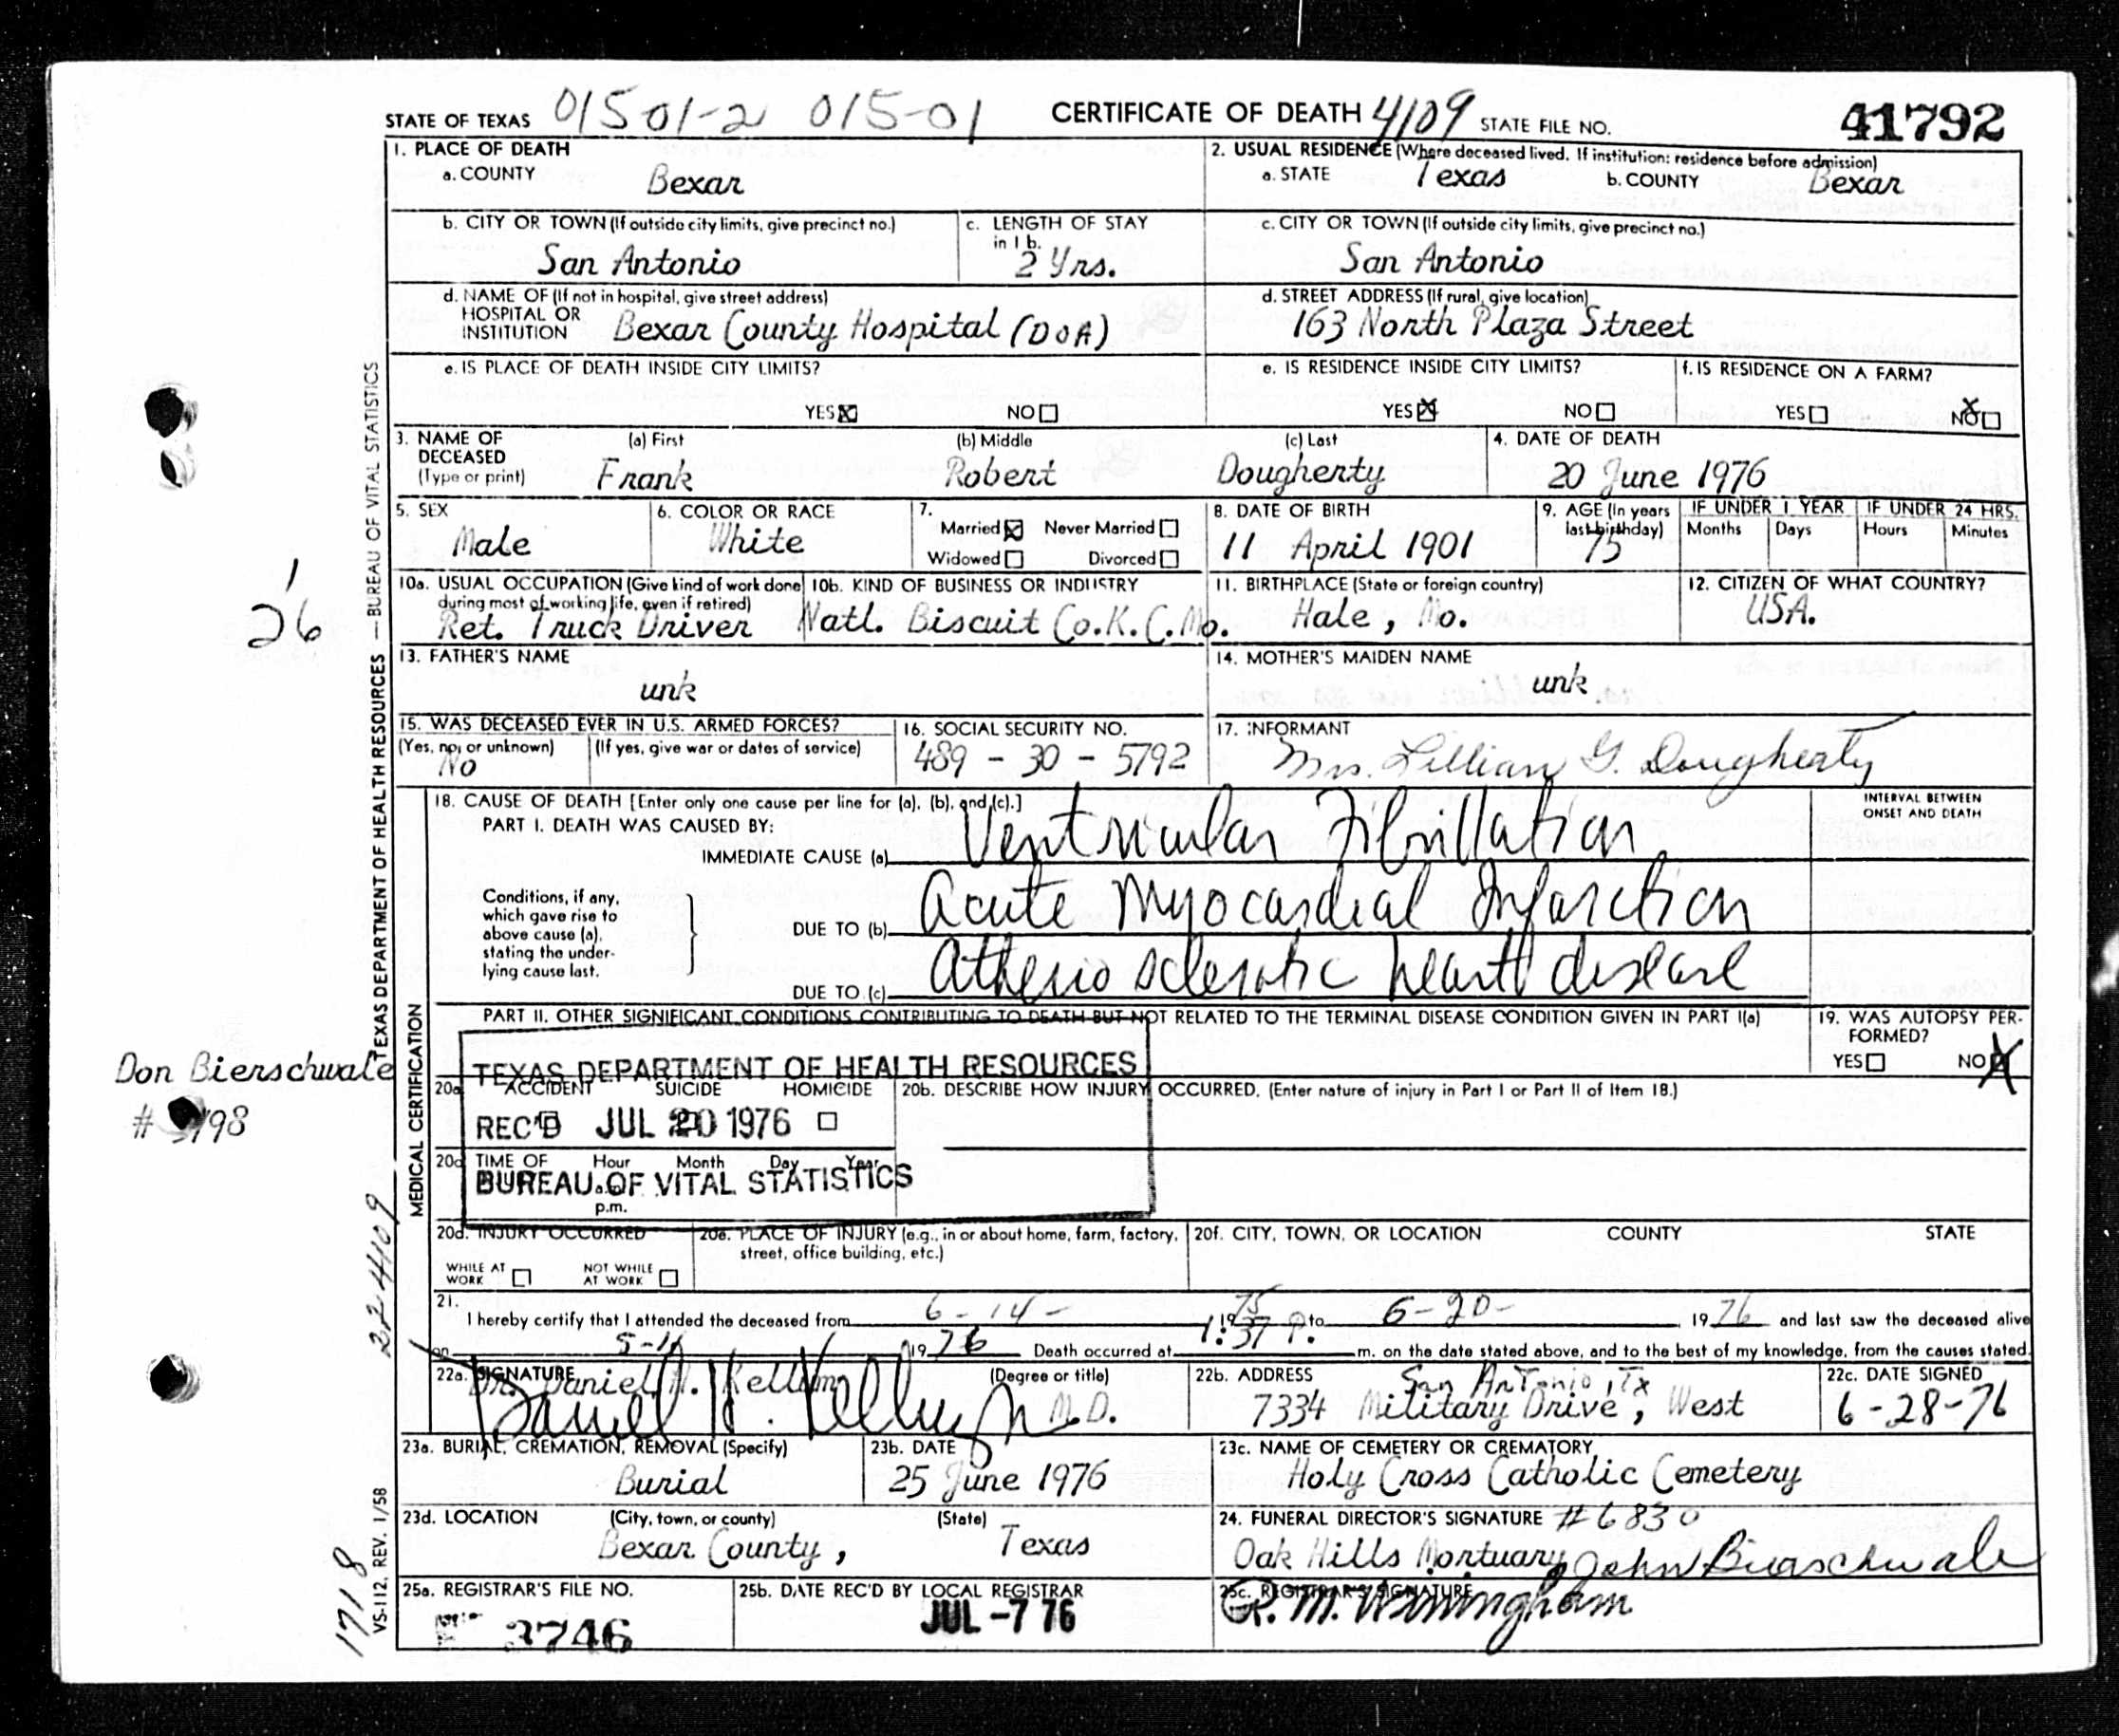 STATE OF TEXAS 01501-2 015-01 CERTIFICATE OF DEATH 4109 STATE FILE NO. 41792
1. PLACE OF DEATH
a. COUNTY Bexar
2. USUAL RESIDENCE (Where deceased lived. If institution: residence before admission)
a. STATE Texas b. COUNTY Bexar
b. CITY OR TOWN (If outside city limits, give precinct no.)
San Antonio
c. LENGTH OF STAY
in 1 b.
2 Yrs.
c. CITY OR TOWN (If outside city limits, give precinct no.)
San Antonio
d. NAME OF (If not in hospital, give street address)
HOSPITAL OR
INSTITUTION Bexar County Hospital (DOA)
d. STREET ADDRESS (If rural, give location)
163 North Plaza Street
e. IS PLACE OF DEATH INSIDE CITY LIMITS?
YES NO
e. IS RESIDENCE INSIDE CITY LIMITS?
YES NO
f. IS RESIDENCE ON A FARM?
YES NO
3. NAME OF DECEASED (Type or print)
(a) First (b) Middle (c) Last
Frank Robert Dougherty
4. DATE OF DEATH
20 June 1976
5. SEX
Male
6. COLOR OR RACE
White
7.
Married Never Married
Widowed Divorced
8. DATE OF BIRTH
11 April 1901
9. AGE (In years
last birthday)
75
IF UNDER 1 YEAR
Months Days
IF UNDER 24 HRS.
Hours Minutes
10a. USUAL OCCUPATION (Give kind of work done
during most of working life, even if retired)
Ret. Truck Driver
10b. KIND OF BUSINESS OR INDUSTRY
Natl. Biscuit Co. K.C. Mo.
11. BIRTHPLACE (State or foreign country)
Hale, Mo.
12. CITIZEN OF WHAT COUNTRY?
USA.
13. FATHER'S NAME
unk
14. MOTHER'S MAIDEN NAME
unk
15. WAS DECEASED EVER IN U.S. ARMED FORCES?
(Yes, no, or unknown) (If yes, give war or dates of service)
No
16. SOCIAL SECURITY NO.
489 - 30 - 5792
17. INFORMANT
Mrs. Lillian G. Dougherty
18. CAUSE OF DEATH [Enter only one cause per line for (a), (b), and (c).]
INTERVAL BETWEEN
ONSET AND DEATH
PART I. DEATH WAS CAUSED BY:
IMMEDIATE CAUSE (a) Ventricular Fibrillation
Conditions, if any,
which gave rise to
above cause (a),
stating the under-
lying cause last.
DUE TO (b) Acute Myocardial Infarction
DUE TO (c) Atherio sclerotic heart disease
PART II. OTHER SIGNIFICANT CONDITIONS CONTRIBUTING TO DEATH BUT NOT RELATED TO THE TERMINAL DISEASE CONDITION GIVEN IN PART I(a)
19. WAS AUTOPSY PER-
FORMED?
YES NO
TEXAS DEPARTMENT OF HEALTH RESOURCES
REC'D JUL 20 1976
BUREAU OF VITAL STATISTICS
20a. ACCIDENT SUICIDE HOMICIDE
20b. DESCRIBE HOW INJURY OCCURRED. (Enter nature of injury in Part I or Part II of Item 18.)
20c. TIME OF Hour Month Day Year
a.m.
p.m.
20d. INJURY OCCURRED
WHILE AT
WORK
NOT WHILE
AT WORK
20e. PLACE OF INJURY (e.g., in or about home, farm, factory,
street, office building, etc.)
20f. CITY, TOWN, OR LOCATION COUNTY STATE
21.
I hereby certify that I attended the deceased from 6-14- 1975 to 6-20- 1976 and last saw the deceased alive
on 5-11 1976 Death occurred at 1:37 P. m. on the date stated above, and to the best of my knowledge, from the causes stated.
22a. SIGNATURE (Degree or title)
Dr. Daniel H. Kellum M.D.
22b. ADDRESS San Antonio, Tx
7334 Military Drive, West
22c. DATE SIGNED
6-28-76
23a. BURIAL, CREMATION, REMOVAL (Specify)
Burial
23b. DATE
25 June 1976
23c. NAME OF CEMETERY OR CREMATORY
Holy Cross Catholic Cemetery
23d. LOCATION (City, town, or county) (State)
Bexar County, Texas
24. FUNERAL DIRECTOR'S SIGNATURE #6830
Oak Hills Mortuary John Bierschwale
25a. REGISTRAR'S FILE NO.
3746
25b. DATE REC'D BY LOCAL REGISTRAR
JUL -7 76
25c. REGISTRAR'S SIGNATURE
TEXAS DEPARTMENT OF HEALTH RESOURCES — BUREAU OF VITAL STATISTICS
MEDICAL CERTIFICATION
VS-112, REV. 1/58
Don Bierschwale
224109
1718